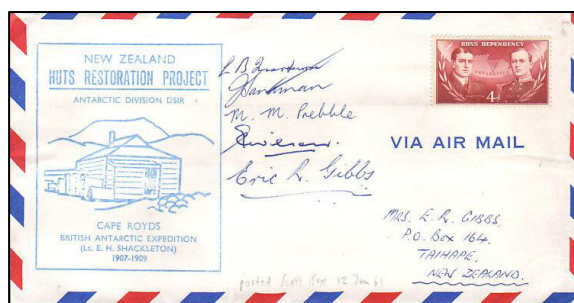 NEW ZEALAND
HUTS RESTORATION PROJECT
ANTARCTIC DIVISION DSIR
CAPE ROYDS
BRITISH ANTARCTIC EXPEDITION
(Lt. E. H. SHACKLETON)
1907-1909
M. M. Prebble
Eric R. Gibbs
ROSS DEPENDENCY
ANTARCTIC
4
VIA AIR MAIL
MRS. E. R. GIBBS,
P.O. Box 164,
TAIHAPE,
NEW ZEALAND.
posted Scott Base 12 Jan 61